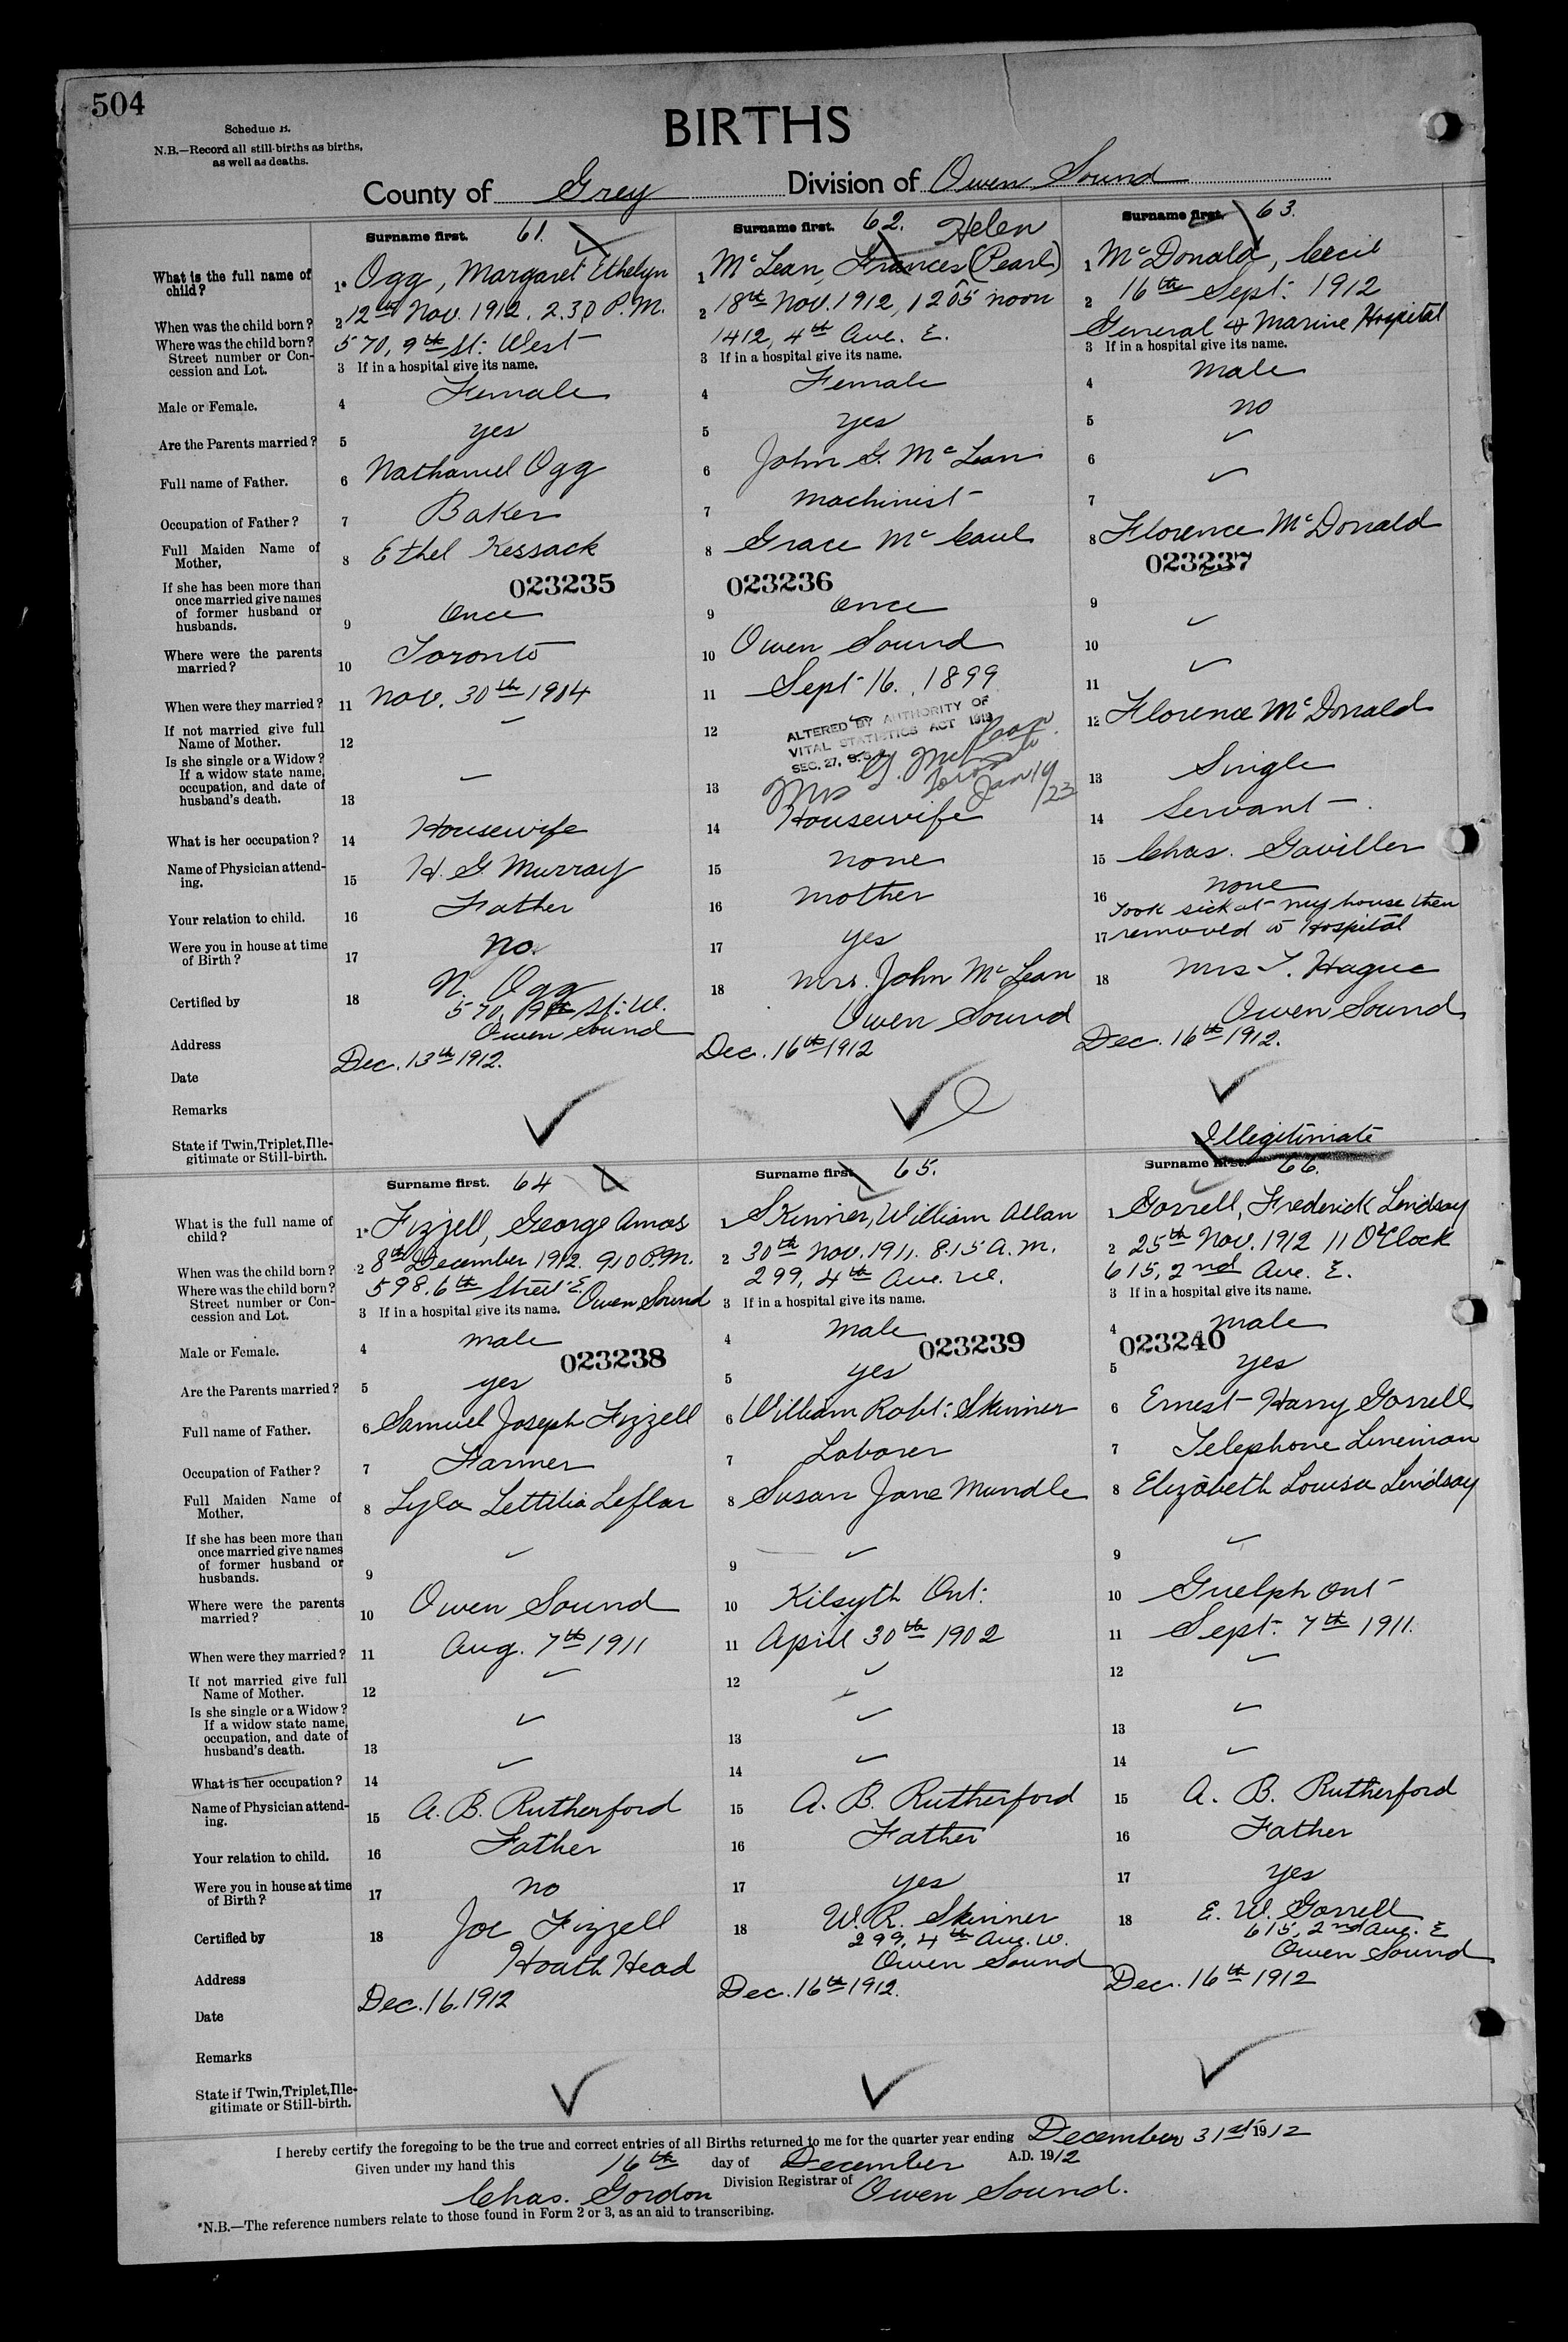 504
Schedule B.
N.B.—Record all still-births as births,
as well as deaths.
BIRTHS
County of Grey Division of Owen Sound
Surname first. 61.
What is the full name of child? 1* Ogg, Margaret Ethelyn
When was the child born? 2 12th Nov. 1912. 2.30 P.M.
Where was the child born? Street number or Concession and Lot. 570, 9th St: West
3 If in a hospital give its name.
Male or Female. 4 Female
Are the Parents married? 5 yes
Full name of Father. 6 Nathaniel Ogg
Occupation of Father? 7 Baker
Full Maiden Name of Mother, 8 Ethel Kessack
023235
If she has been more than once married give names of former husband or husbands. 9 Once
Where were the parents married? 10 Toronto
When were they married? 11 Nov. 30th 1904
If not married give full Name of Mother. 12
Is she single or a Widow? If a widow state name, occupation, and date of husband's death. 13
What is her occupation? 14 Housewife
Name of Physician attending. 15 H. G. Murray
Your relation to child. 16 Father
Were you in house at time of Birth? 17 no.
Certified by 18 N. Ogg
Address 570, 9th St: W.
Owen Sound
Date Dec. 13th 1912.
Remarks
State if Twin, Triplet, Illegitimate or Still-birth.
Surname first. 62. Helen
1 McLean, Frances (Pearl)
2 18th Nov. 1912, 12 05 noon
1412, 4th Ave. E.
3 If in a hospital give its name.
4 Female
5 yes
6 John G. McLean
7 machinist
8 Grace McCaul
023236
9 once
10 Owen Sound
11 Sept 16. 1899
12 ALTERED BY AUTHORITY OF
VITAL STATISTICS ACT 1919
SEC. 27,
13 Mrs G. McLean
Toronto
Jan 19/23
14 Housewife
15 none
16 mother
17 yes
18 Mrs. John McLean
Owen Sound
Dec. 16th 1912
Surname first. 63.
1 McDonald, Cecil
2 16th Sept: 1912
General & Marine Hospital
3 If in a hospital give its name.
4 male
5 no
6
7
8 Florence McDonald
023237
9
10
11
12 Florence McDonald
13 Single
14 Servant
15 Chas. Gaviller
16 none
Took sick at my house then
17 removed to Hospital
18 Mrs T. Hague
Owen Sound
Dec. 16th 1912.
Illegitimate
Surname first. 64
What is the full name of child? 1* Fizzell, George Amos
When was the child born? 2 8th December 1912. 910 P.M.
Where was the child born? Street number or Concession and Lot. 598. 6th Street E.
3 If in a hospital give its name. Owen Sound
Male or Female. 4 male
023238
Are the Parents married? 5 yes
Full name of Father. 6 Samuel Joseph Fizzell
Occupation of Father? 7 Farmer
Full Maiden Name of Mother, 8 Lyla Lettitia Leflar
If she has been more than once married give names of former husband or husbands. 9
Where were the parents married? 10 Owen Sound
When were they married? 11 Aug. 7th 1911
If not married give full Name of Mother. 12
Is she single or a Widow? If a widow state name, occupation, and date of husband's death. 13
What is her occupation? 14
Name of Physician attending. 15 A. B. Rutherford
Your relation to child. 16 Father
Were you in house at time of Birth? 17 no
Certified by 18 Joe Fizzell
Address Hoath Head
Date Dec. 16. 1912
Remarks
State if Twin, Triplet, Illegitimate or Still-birth.
Surname first 65.
1 Skinner, William Allan
2 30th Nov. 1911. 8.15 A.M.
299, 4th Ave. W.
3 If in a hospital give its name.
4 Male
023239
5 yes
6 William Robt: Skinner
7 Laborer
8 Susan Jane Mundle
9
10 Kilsyth Ont:
11 April 30th 1902
12
13
14
15 A. B. Rutherford
16 Father
17 yes
18 W. R. Skinner
299, 4th Ave. W.
Owen Sound
Dec. 16th 1912.
Surname first. 66.
1 Gorrell, Frederick Lindsay
2 25th Nov. 1912 11 O'Clock
615, 2nd Ave. E.
3 If in a hospital give its name.
4 male
023240
5 yes
6 Ernest Harry Gorrell
7 Telephone Lineman
8 Elizabeth Louisa Lindsay
9
10 Guelph Ont
11 Sept. 7th 1911.
12
13
14
15 A. B. Rutherford
16 Father
17 yes
18 E. W. Gorrell
615, 2nd Ave. E
Owen Sound
Dec. 16th 1912
I hereby certify the foregoing to be the true and correct entries of all Births returned to me for the quarter year ending December 31st 1912
Given under my hand this 16th day of December A.D. 1912
Chas. Gordon Division Registrar of Owen Sound.
*N.B.—The reference numbers relate to those found in Form 2 or 3, as an aid to transcribing.